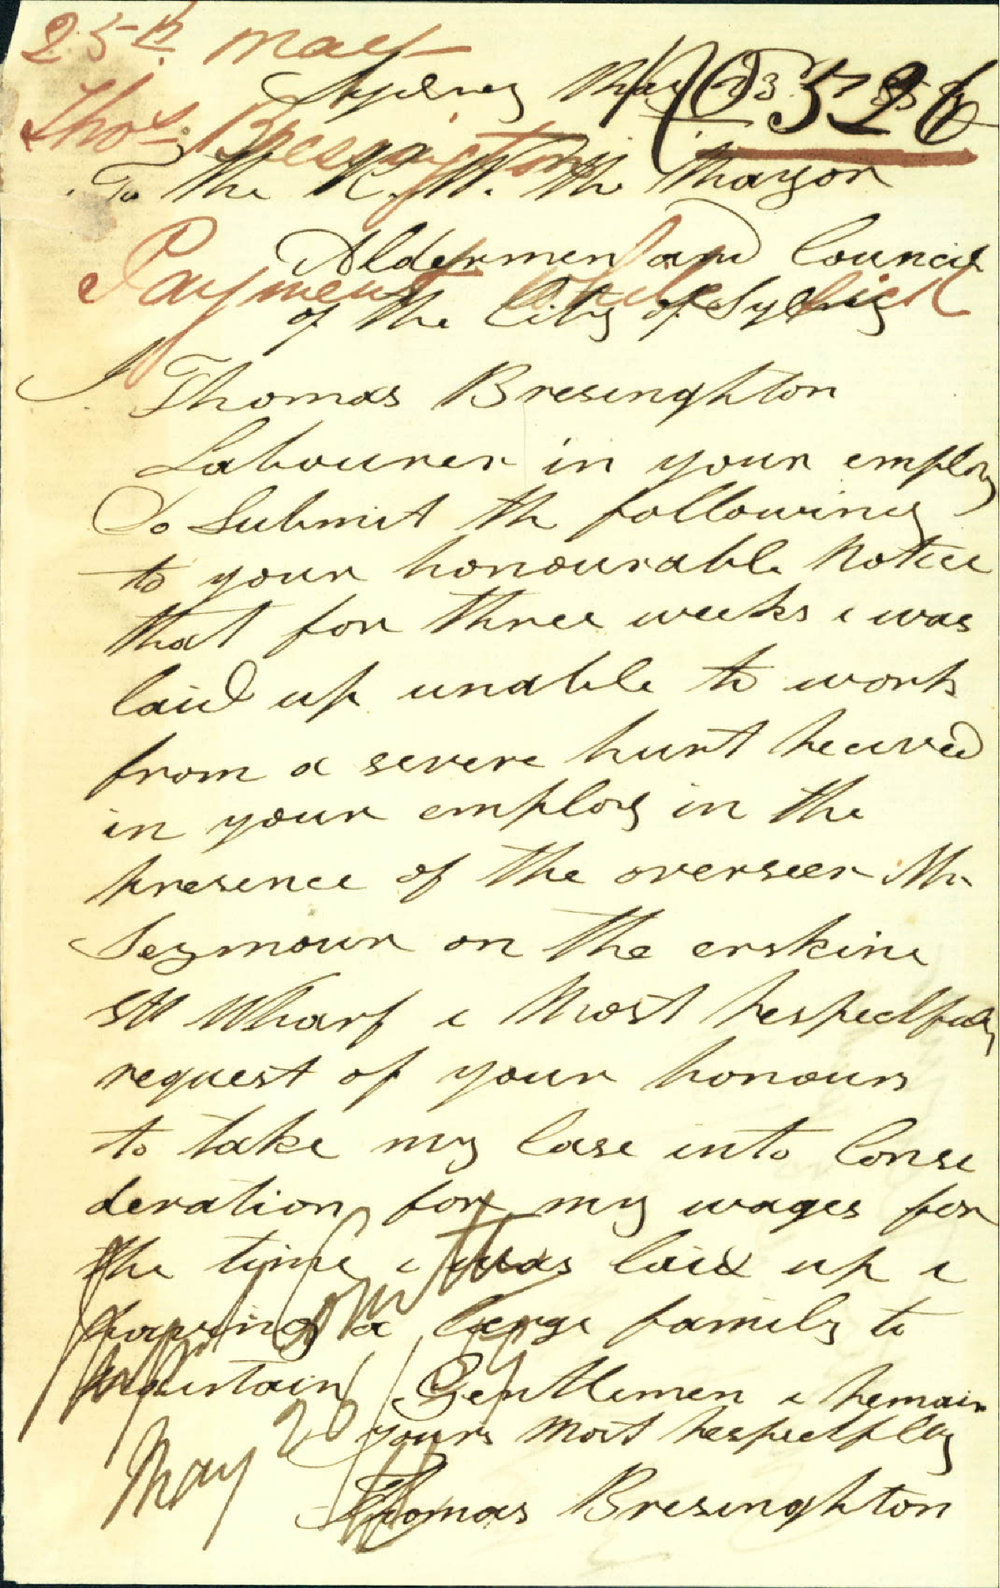 25th May
Sydney May 23
526
Thos Bressington
To the R. W. the Mayor
Aldermen and Council
Payment while sick
of the City of Sydney
I Thomas Bresinghton
Labourer in your employ
To Submit the following
to your honourable Notice
that for three weeks i was
laid up unable to work
from a severe hurt received
in your employ in the
presence of the overseer Mr
Seymour on the erskine
Stt Wharf i Most respectfuly
request of your honours
to take my Case into Conse
deration for my wages for
the time i was laid up i
having a large family to
Maintain Gentlemen i remain
yours Most respectflly
Thomas Bresinghton
May 26